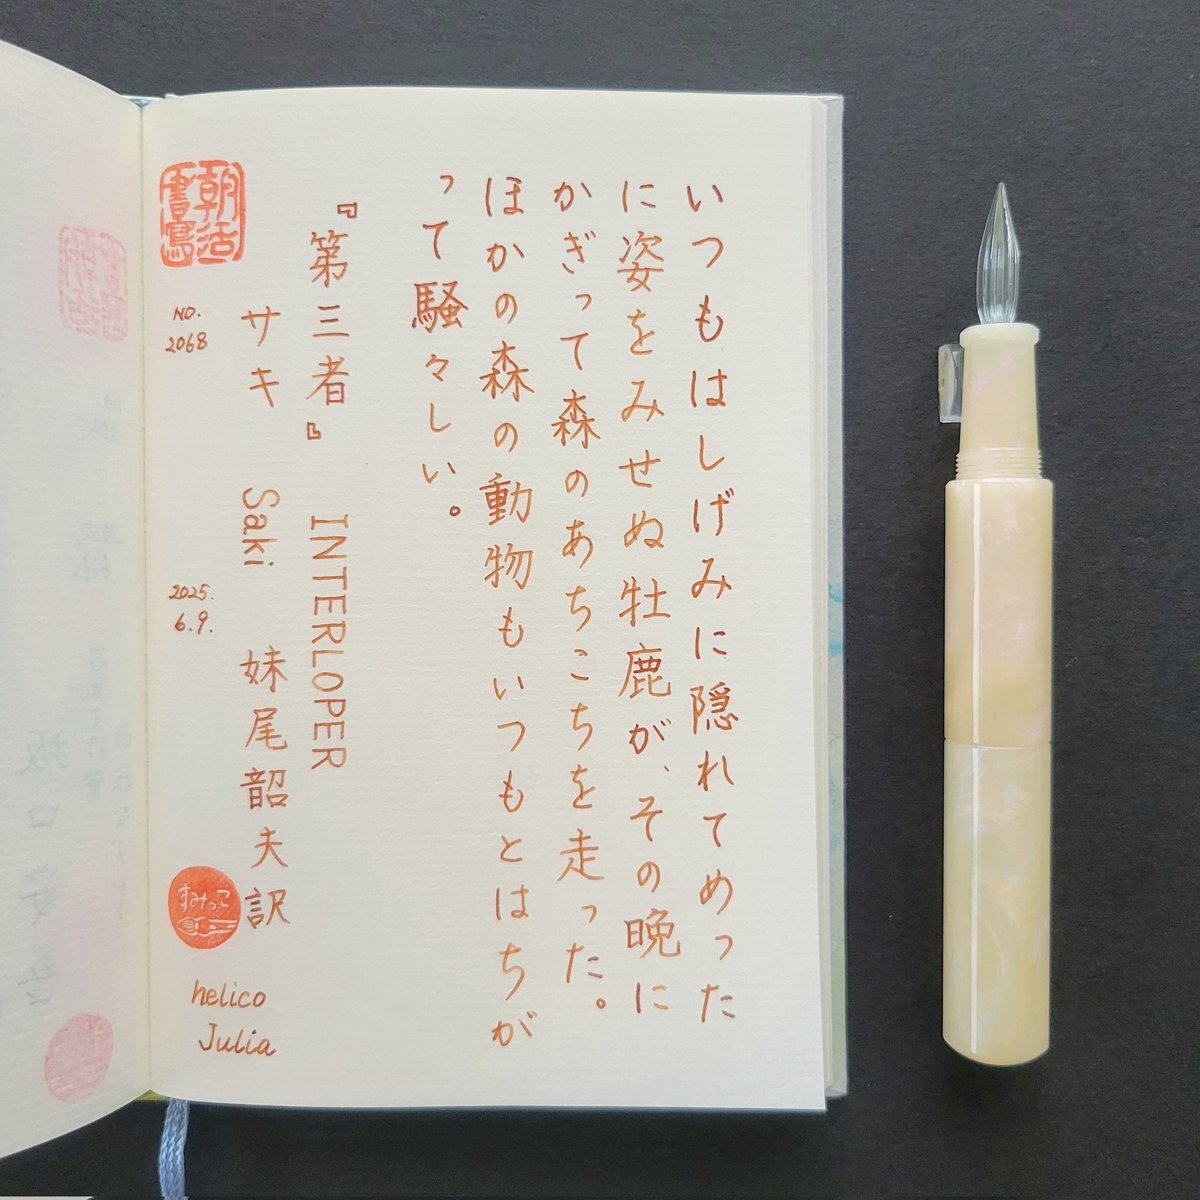 いつもはしげみに隠れてめった
に姿をみせぬ牡鹿が、その晩に
かぎって森のあちこちを走った。
ほかの森の動物もいつもとはちが
って騒々しい。
『第三者』 INTERLOPER
サキ Saki 妹尾韶夫訳
朝活書寫
NO.
2068
2025.
6.9.
すみっこ
helico
Julia